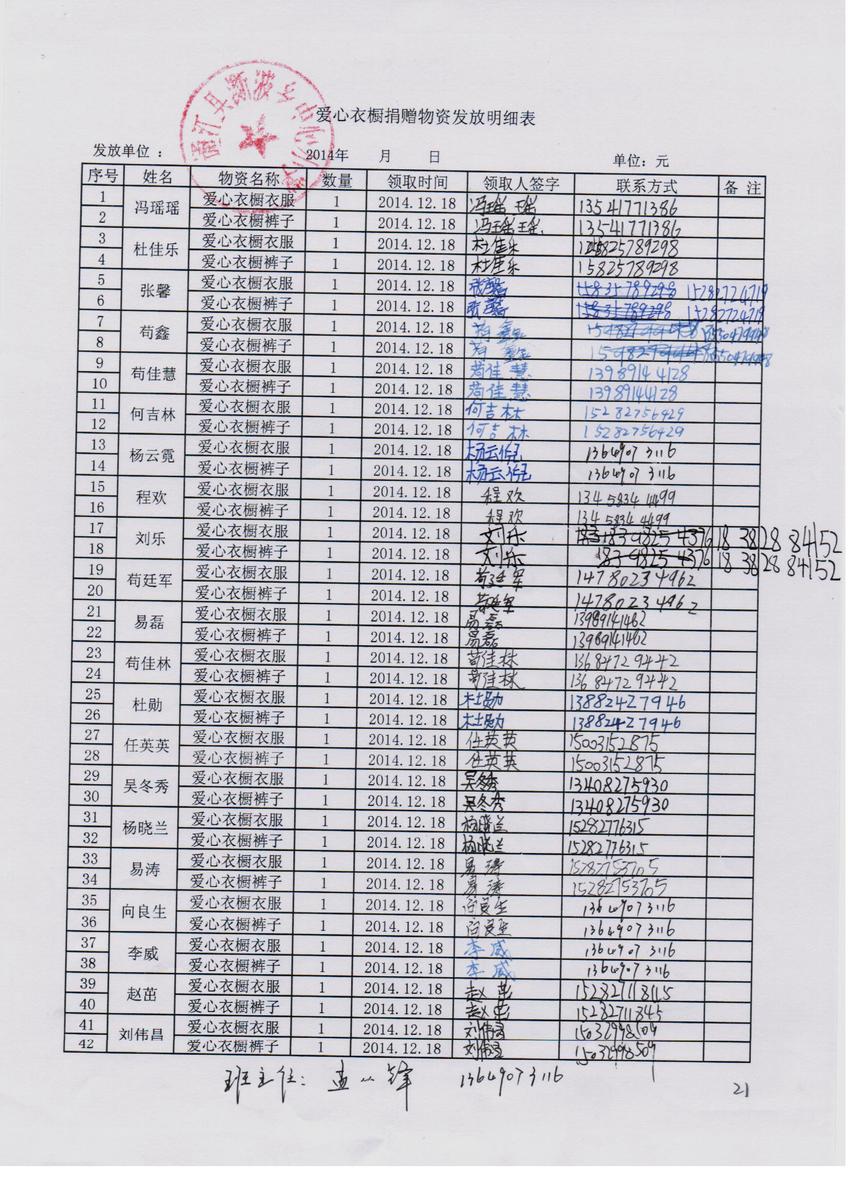 爱心衣橱捐赠物资发放明细表
发放单位： 2014年 月 日 单位：元
序号 姓名 物资名称 数量 领取时间 领取人签字 联系方式 备 注
1 冯瑶瑶 爱心衣橱衣服 1 2014.12.18 冯瑶瑶 13541771386
2 爱心衣橱裤子 1 2014.12.18 冯瑶瑶 13541771386
3 杜佳乐 爱心衣橱衣服 1 2014.12.18 杜佳乐 15825789298
4 爱心衣橱裤子 1 2014.12.18 杜佳乐 15825789298
5 张馨 爱心衣橱衣服 1 2014.12.18 张馨 15282724719
6 爱心衣橱裤子 1 2014.12.18 张馨 15282724719
7 苟鑫 爱心衣橱衣服 1 2014.12.18 苟鑫
8 爱心衣橱裤子 1 2014.12.18 苟鑫
9 苟佳慧 爱心衣橱衣服 1 2014.12.18 苟佳慧 13989144128
10 爱心衣橱裤子 1 2014.12.18 苟佳慧 13989144128
11 何吉林 爱心衣橱衣服 1 2014.12.18 何吉林 15282756929
12 爱心衣橱裤子 1 2014.12.18 何吉林 15282756929
13 杨云霓 爱心衣橱衣服 1 2014.12.18 杨云倪 13649073116
14 爱心衣橱裤子 1 2014.12.18 杨云倪 13649073116
15 程欢 爱心衣橱衣服 1 2014.12.18 程欢 13458344499
16 爱心衣橱裤子 1 2014.12.18 程欢 13458344499
17 刘乐 爱心衣橱衣服 1 2014.12.18 刘乐 18382884152
18 爱心衣橱裤子 1 2014.12.18 刘乐 18382884152
19 苟廷军 爱心衣橱衣服 1 2014.12.18 苟廷军 14780234962
20 爱心衣橱裤子 1 2014.12.18 苟廷军 14780234962
21 易磊 爱心衣橱衣服 1 2014.12.18 易磊 13989141462
22 爱心衣橱裤子 1 2014.12.18 易磊 13989141462
23 苟佳林 爱心衣橱衣服 1 2014.12.18 苟佳林 13684729442
24 爱心衣橱裤子 1 2014.12.18 苟佳林 13684729442
25 杜勋 爱心衣橱衣服 1 2014.12.18 杜勋 13882427946
26 爱心衣橱裤子 1 2014.12.18 杜勋 13882427946
27 任英英 爱心衣橱衣服 1 2014.12.18 任英英 15003152875
28 爱心衣橱裤子 1 2014.12.18 任英英 15003152875
29 吴冬秀 爱心衣橱衣服 1 2014.12.18 吴冬秀 13408275930
30 爱心衣橱裤子 1 2014.12.18 吴冬秀 13408275930
31 杨晓兰 爱心衣橱衣服 1 2014.12.18 杨晓兰 15282776315
32 爱心衣橱裤子 1 2014.12.18 杨晓兰 15282776315
33 易涛 爱心衣橱衣服 1 2014.12.18 易涛 15282753705
34 爱心衣橱裤子 1 2014.12.18 易涛 15282753705
35 向良生 爱心衣橱衣服 1 2014.12.18 向良生 13649073116
36 爱心衣橱裤子 1 2014.12.18 向良生 13649073116
37 李威 爱心衣橱衣服 1 2014.12.18 李威 13649073116
38 爱心衣橱裤子 1 2014.12.18 李威 13649073116
39 赵茁 爱心衣橱衣服 1 2014.12.18 赵茁
40 爱心衣橱裤子 1 2014.12.18 赵茁 15282711845
41 刘伟昌 爱心衣橱衣服 1 2014.12.18 刘伟昌
42 爱心衣橱裤子 1 2014.12.18 刘伟昌 15032998509
班主任： 13649073116
21